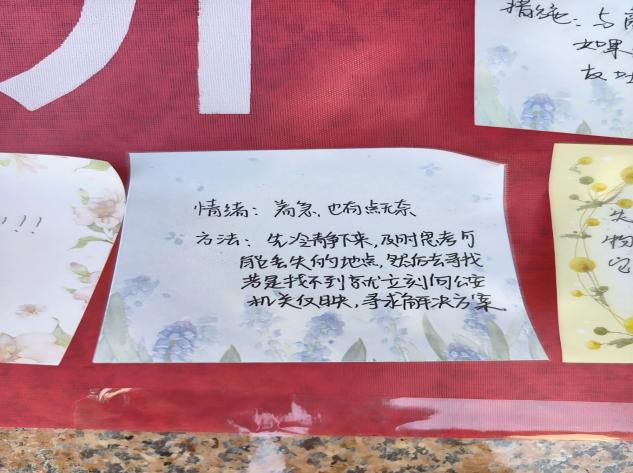 情绪：着急、也有点无奈
方法：先冷静下来，及时思考可
能丢失的地点，然后去寻找
若是找不到就立刻向公安
机关反映，寻求解决方案
情绪：与
如果
友
！！！
失
物